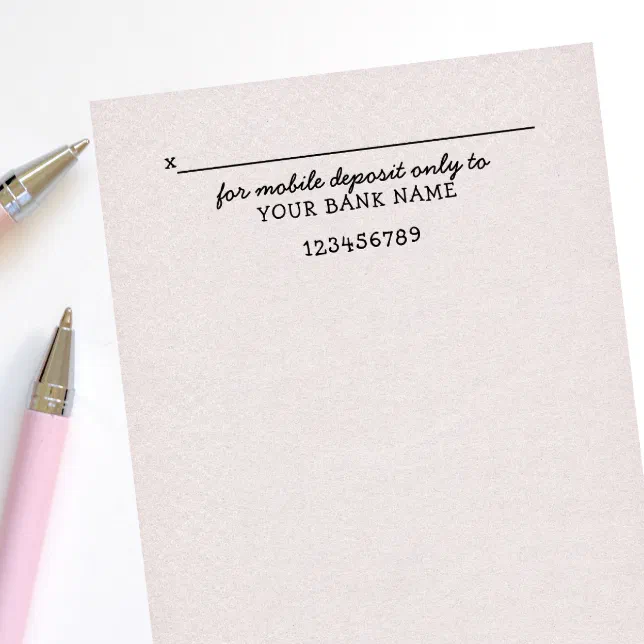 x
for mobile deposit only to
YOUR BANK NAME
123456789